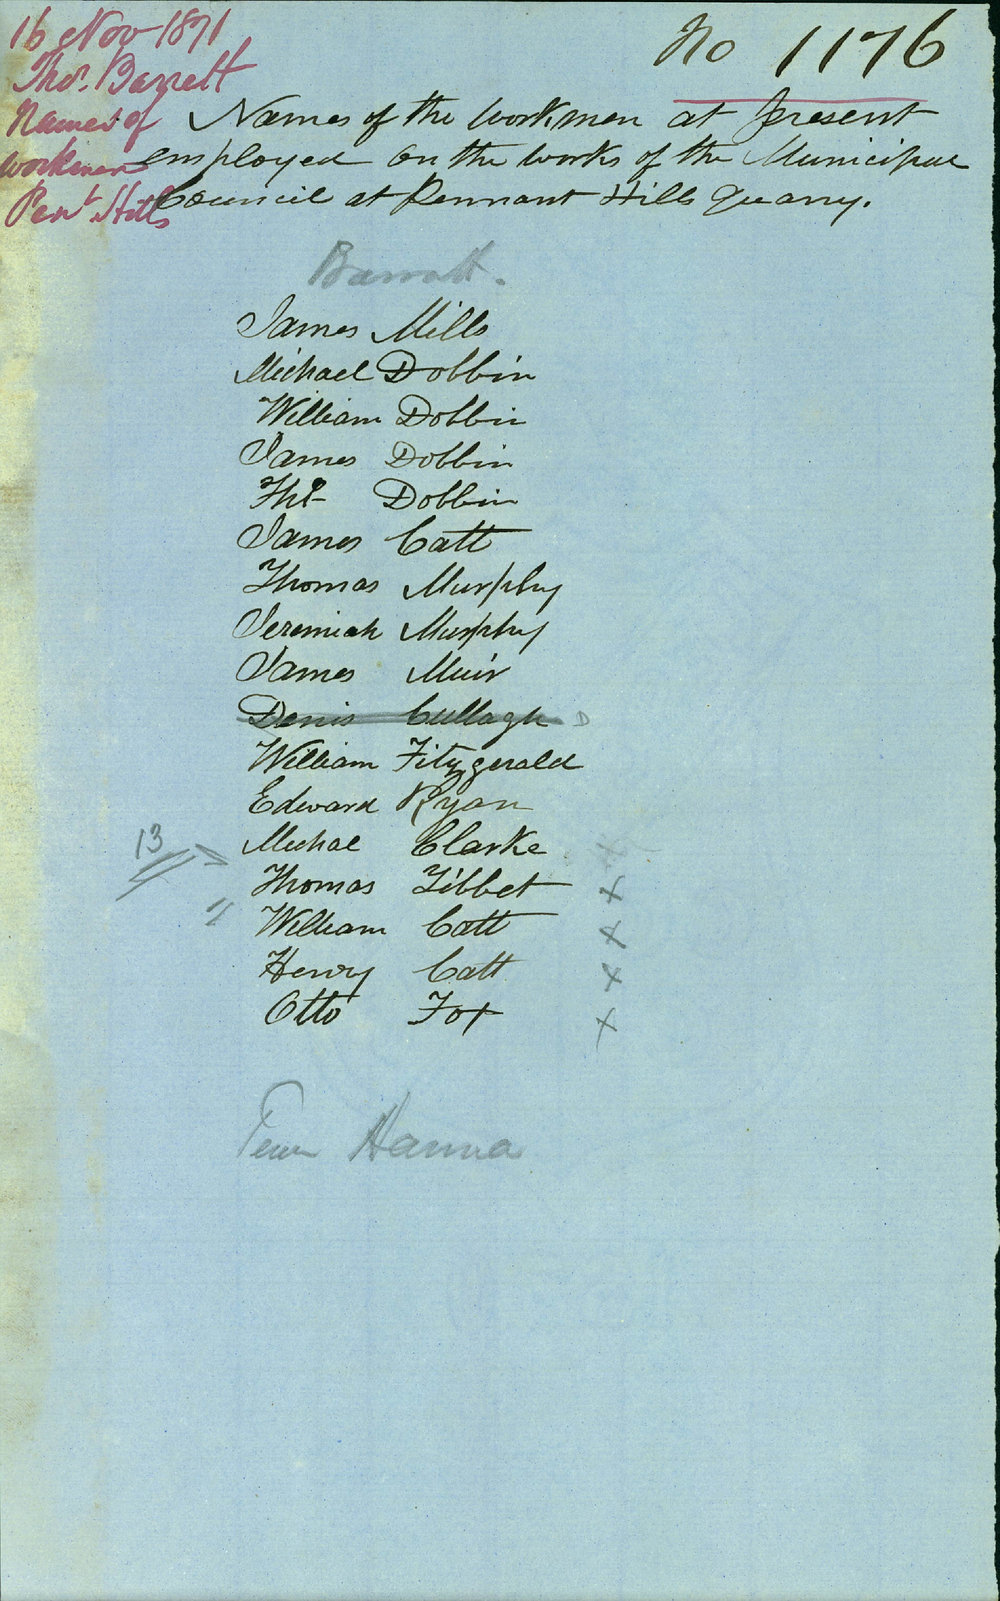 No 1176
16 Nov 1871
Thos. Barrett
Names of
workmen
Pent. Hills
Names of the workmen at present
employed on the works of the Municipal
Council at Pennant Hills Quarry.
Barratt.
James Mills
Michael Dobbin
William Dobbin
James Dobbin
Thos Dobbin
James Catt
Thomas Murphy
Jeremiah Murphy
James Muir
Denis Cullagh D
William Fitzgerald
Edward Ryan
13 Michal Clarke x
Thomas Tibbet x
" William Catt x
Henry Catt x
Otto Fox x
Hanna